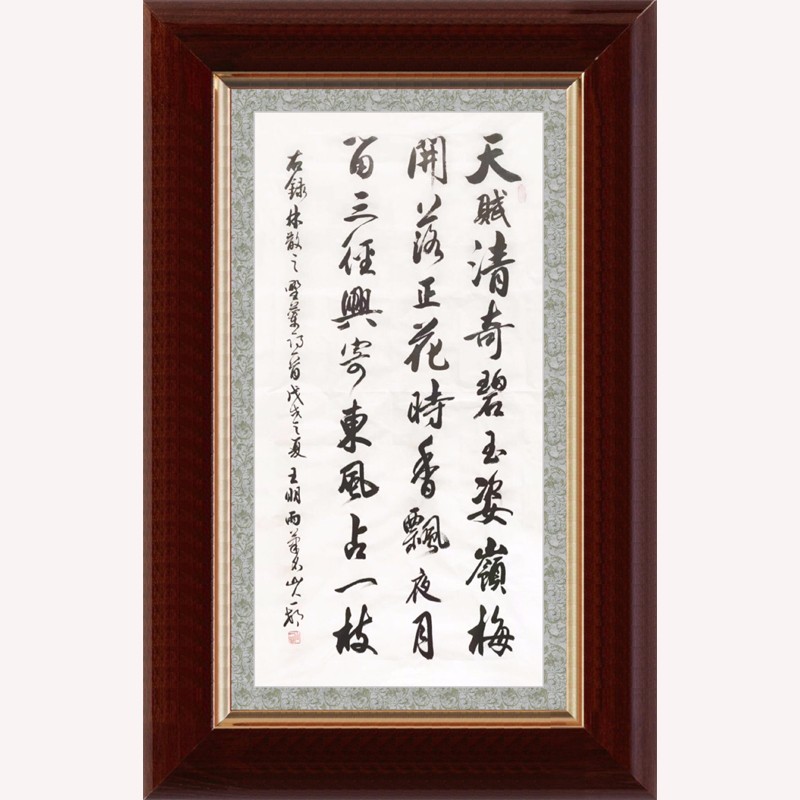 天賦清奇碧玉姿嶺梅
開落正花時香飄夜月
留三徑興寄東風占一枝
右錄林散之 一首戊戌之夏王明雨